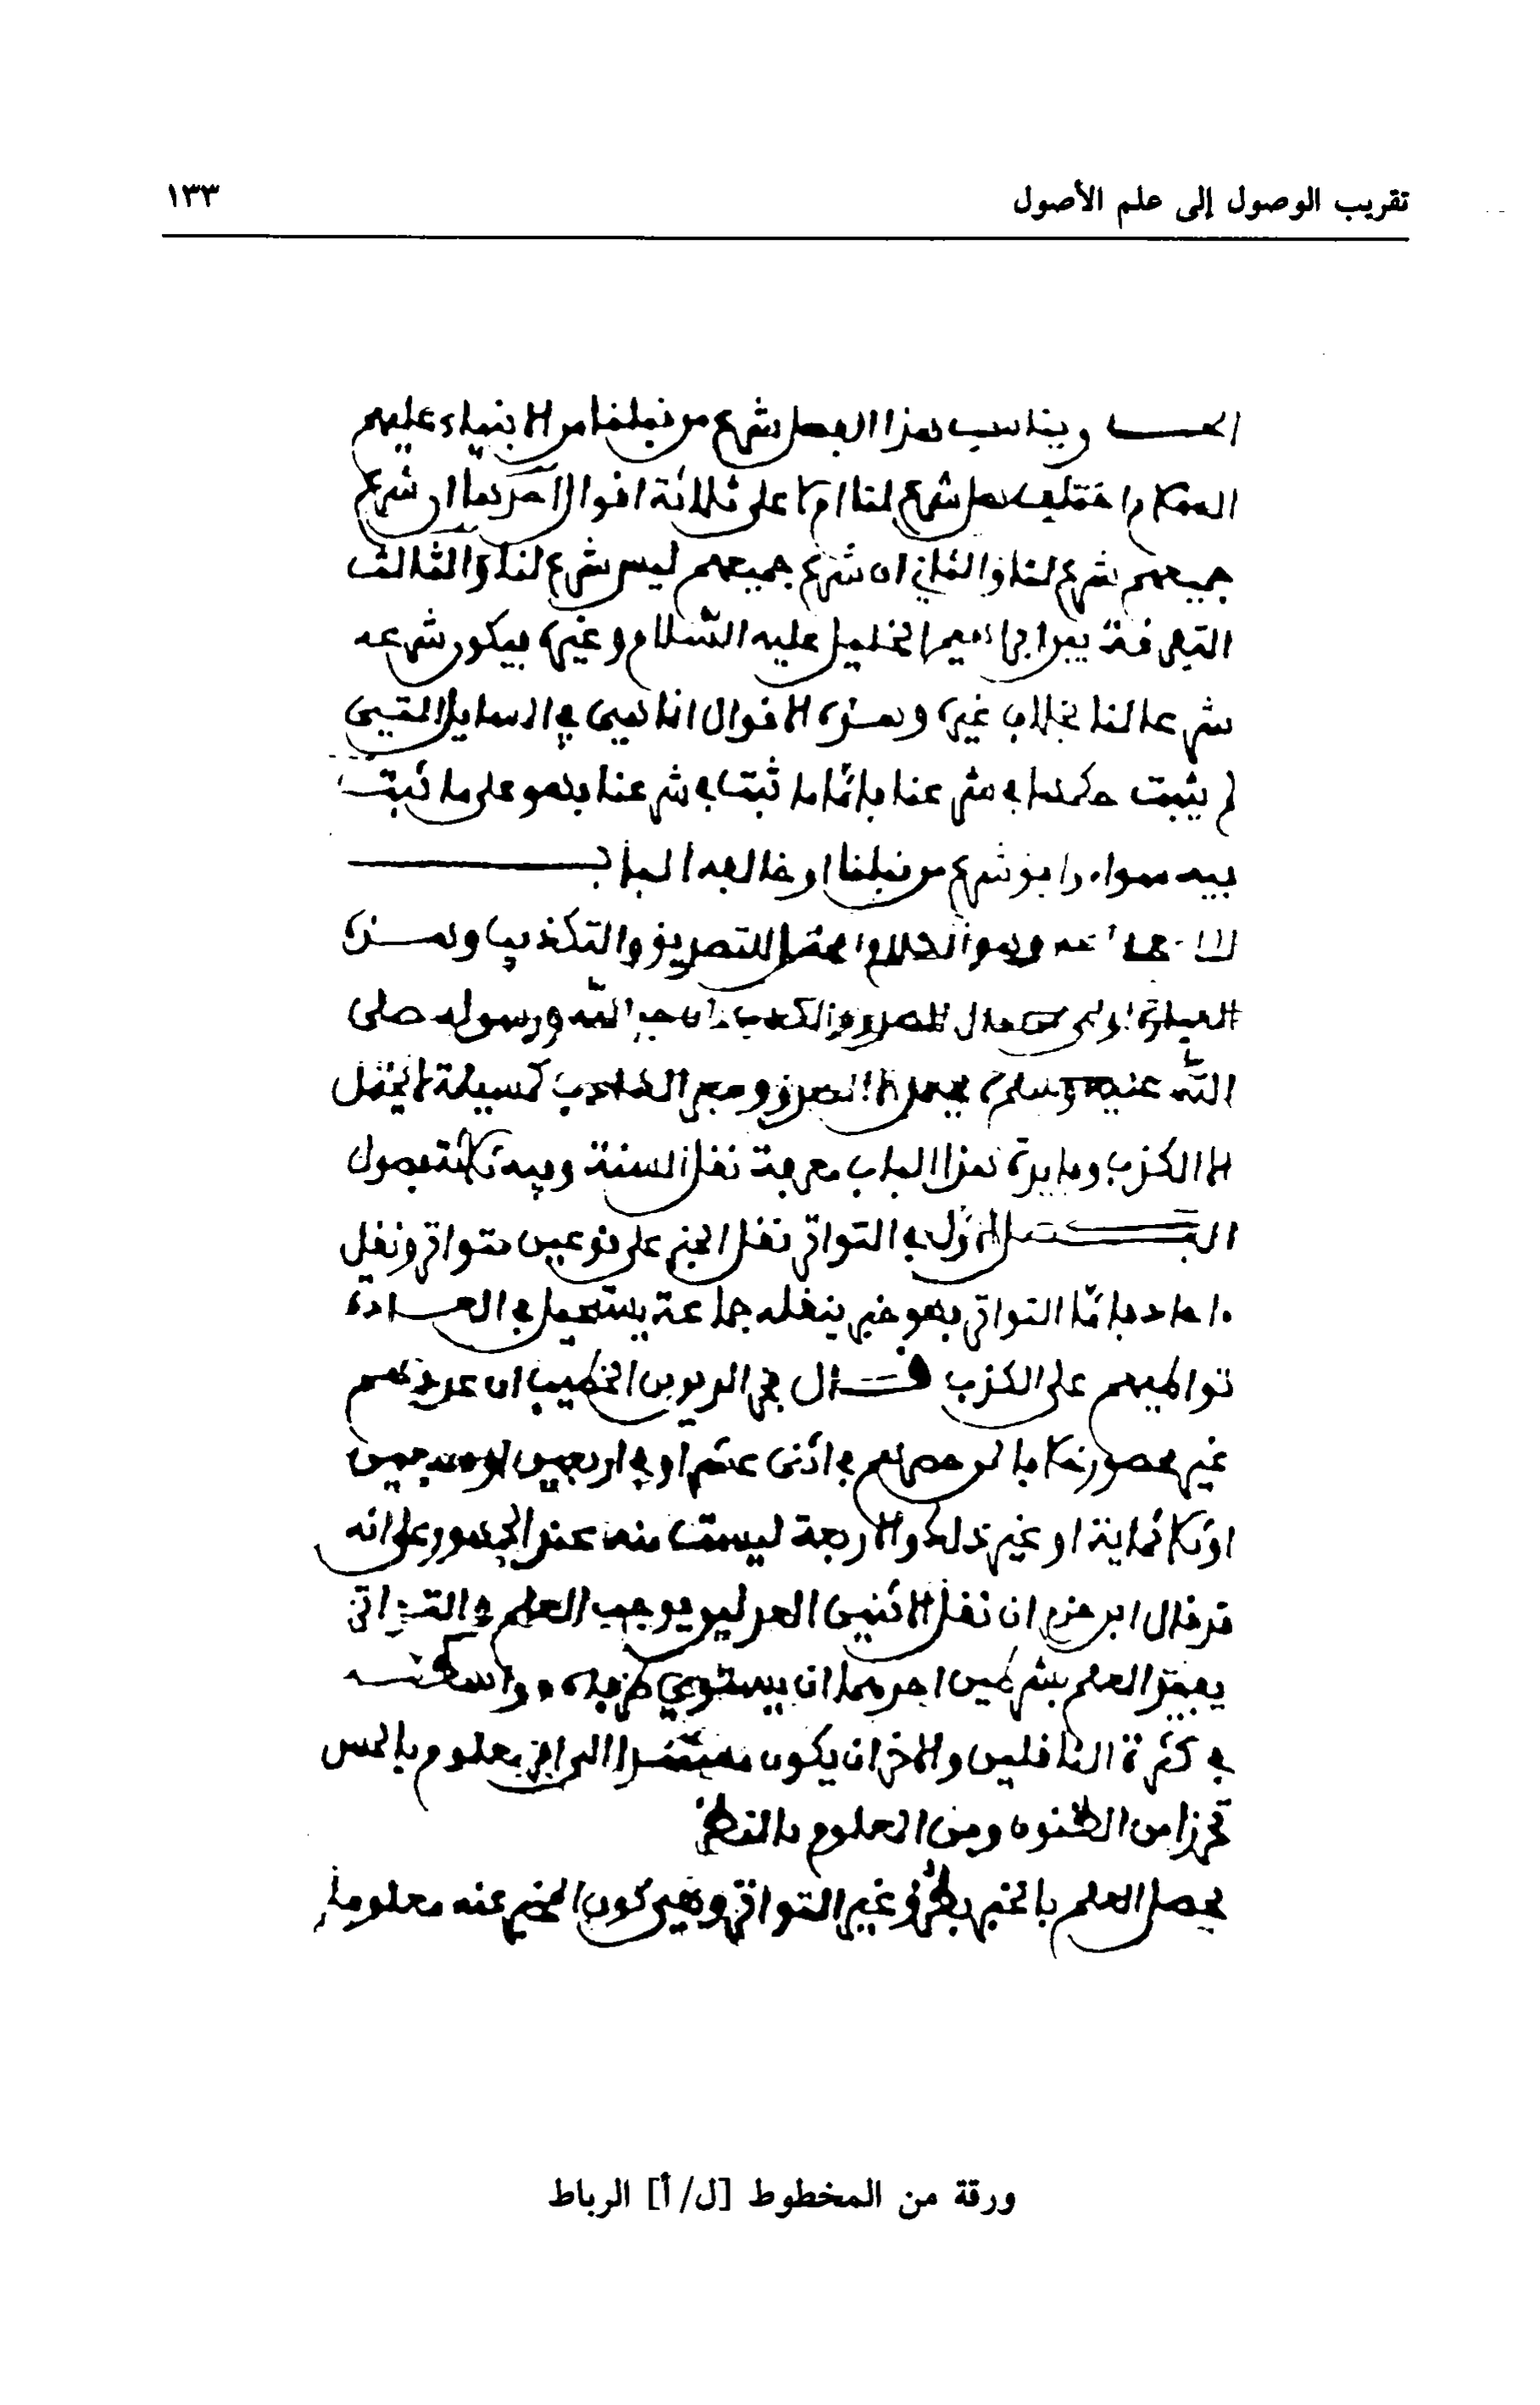 تقريب الوصول إلى علم الأصول
١٣٣
ويناسب هذا الفصل شرع من قبلنا من الانبياء عليهم
السلام واختلف هل شرع لنا ام لا على ثلاثة افوال احدها ان شرع
جميعهم شرع لنا والثاني ان شرع جميعهم ليس شرع لنا والثالث
التفرفة بين ابراهيم الخليل عليه السلام وغيره فيكون شرعه
شرعا لنا بخلاف غيره وهذه الافوال انما هي في المسايل التي
لم يثبت حكمها في شرعنا فاما ما ثبت في شرعنا فهو على ما ثبت
فيه سواء وافق شرع من قبلنا او خالفه الباب
وهو الكلام المحتمل للتصديق والتكذيب وهذه
العبارة اولى من للصدق والكذب لان خبر الله ورسوله صلى
الله عليه وسلم لا يحتمل الا الصدق وخبر الكاذب كمسيلمة لا يحتمل
الا الكذب وفايدة هذا الباب معرفة نقل السنة وفيه ثلاثة فصول
الفصل الاول في التواتر نقل الخبر على نوعين متواتر ونقل
ءاحاد فاما التواتر فهو خبر ينقله جماعة يستحيل في العادة
تواطيهم على الكذب قال فخر الدين بن الخطيب ان عددهم
غير محصور خلافا لمن حصرهم في اثنى عشر او في اربعين او سبعين
او ثلاثماية او غير ذلك والاربعة ليست منه عند الجمهور على انه
قد قال ابن حزم ان نقل الاثنين العدلين يوجب العلم والتواتر
يفيد العلم بشرطين احدهما ان يستوي طرفاه وواسطته
في كثرة الناقلين والاخر ان يكون مستندا الى امر معلوم بالحس
تحرزا من الظنون ومن المعلوم بالنظر
يحصل العلم بالخبر بطرق غير التواتر وهي كون المخبر عنه معلوما
ورقة من المخطوط [ل/أ] الرباط